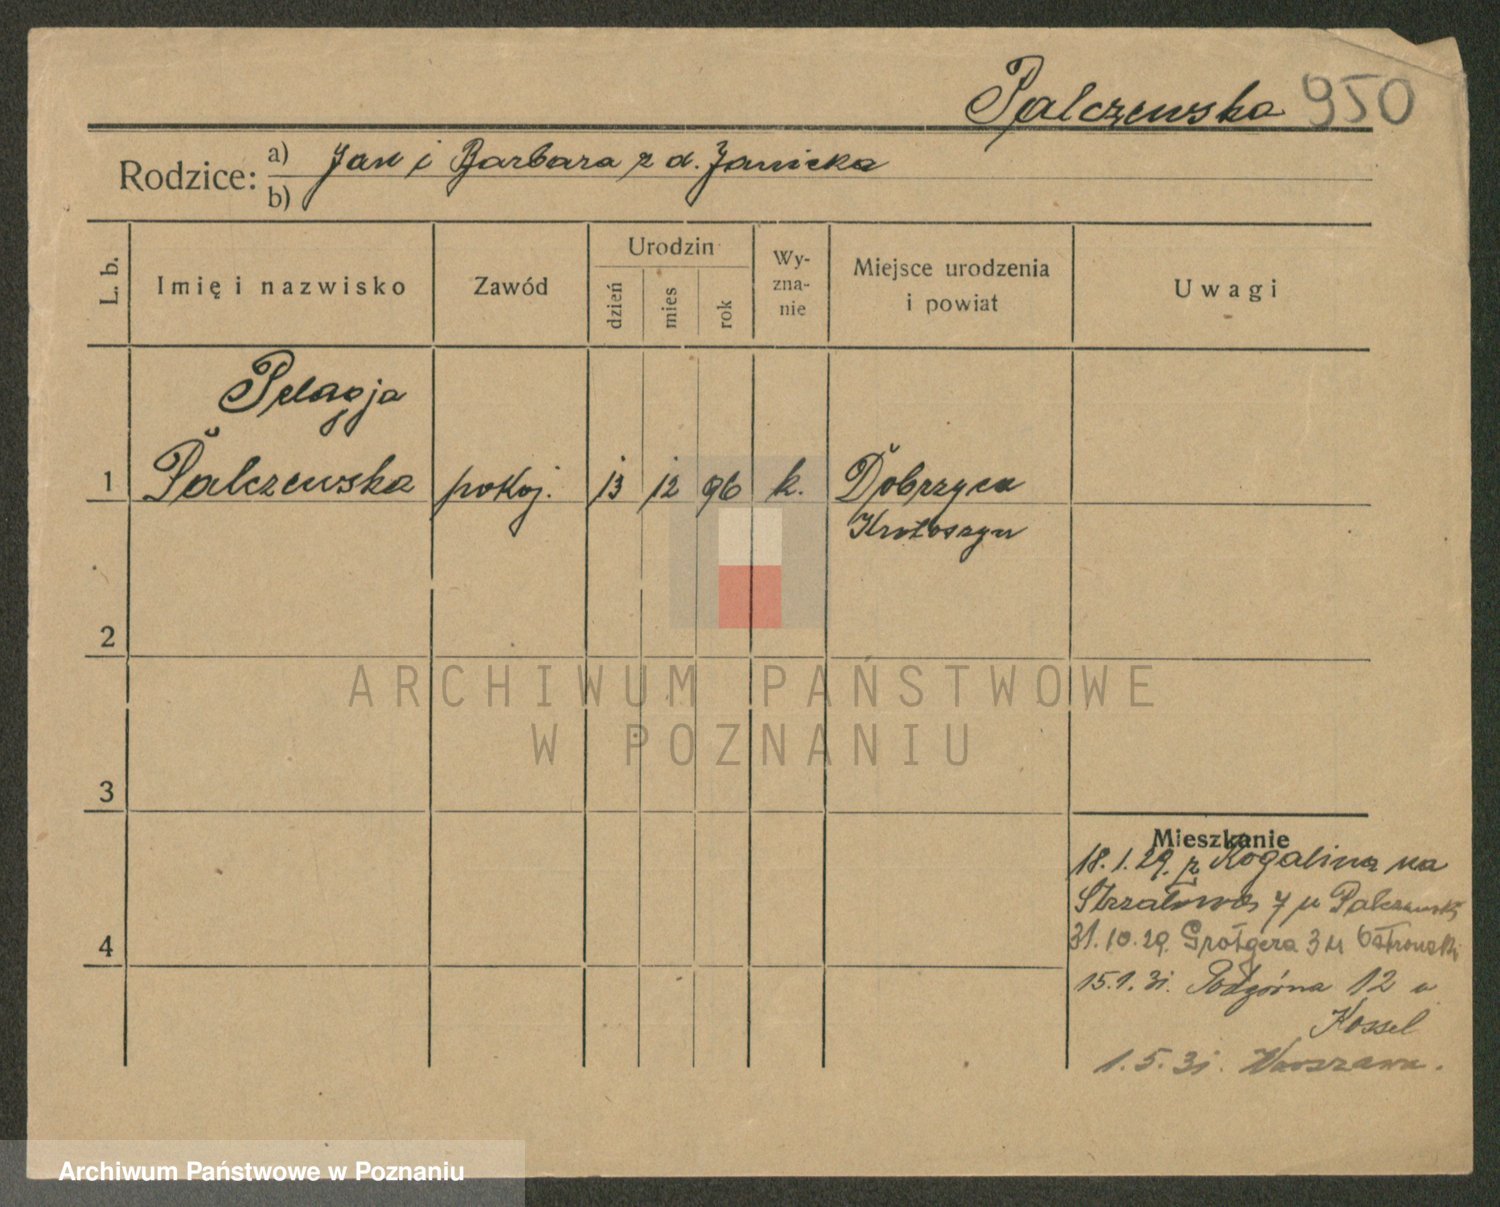 Palczewska 950
Rodzice: a) Jan i Barbara z d. Janicka
b)
L. b.
Imię i nazwisko
Zawód
Urodzin
dzień
mies
rok
Wy-
zna-
nie
Miejsce urodzenia
i powiat
Uwagi
Pelagja
1 Palczewska pokoj. 13 12 96 k. Dobrzyca
Krotoszyn
2
3
4
Mieszkanie
18.1.29. z Rogalina na
Strzałowa 7 u Palczewski
31.10.29. Grotgera 3 u Ostrowski
15.1.31. Podgórna 12 u
Kossel
1.5.31. Warszawa.
ARCHIWUM PAŃSTWOWE
W POZNANIU
Archiwum Państwowe w Poznaniu